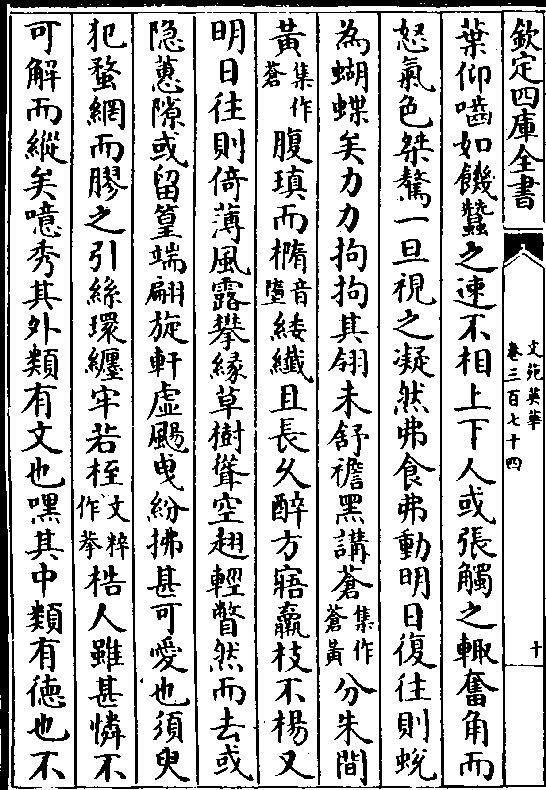 欽定四庫全書
文苑英華
卷三百七十四
十
葉仰嚙如饑蠶之速不相上下人或張觸之輙奮角而
怒氣色桀驁一旦視之凝然弗食弗動明日復往則蛻
為蝴蝶矣力力拘拘其翎未舒襜黑韝蒼集作蒼黃分朱間
黃集作蒼腹瑱而橢音墮緌纖且長久醉方寤羸枝不楊又
明日往則倚薄風露攀緣草樹聳空翅輕瞥然而去或
隐蕙隙或留篁端翩旋軒虛颺曳紛拂甚可愛也須臾
犯蝥網而膠之引絲環纏牢若桎文粹作拲梏人雖甚憐不
可解而縱矣噫秀其外類有文也嘿其中類有徳也不